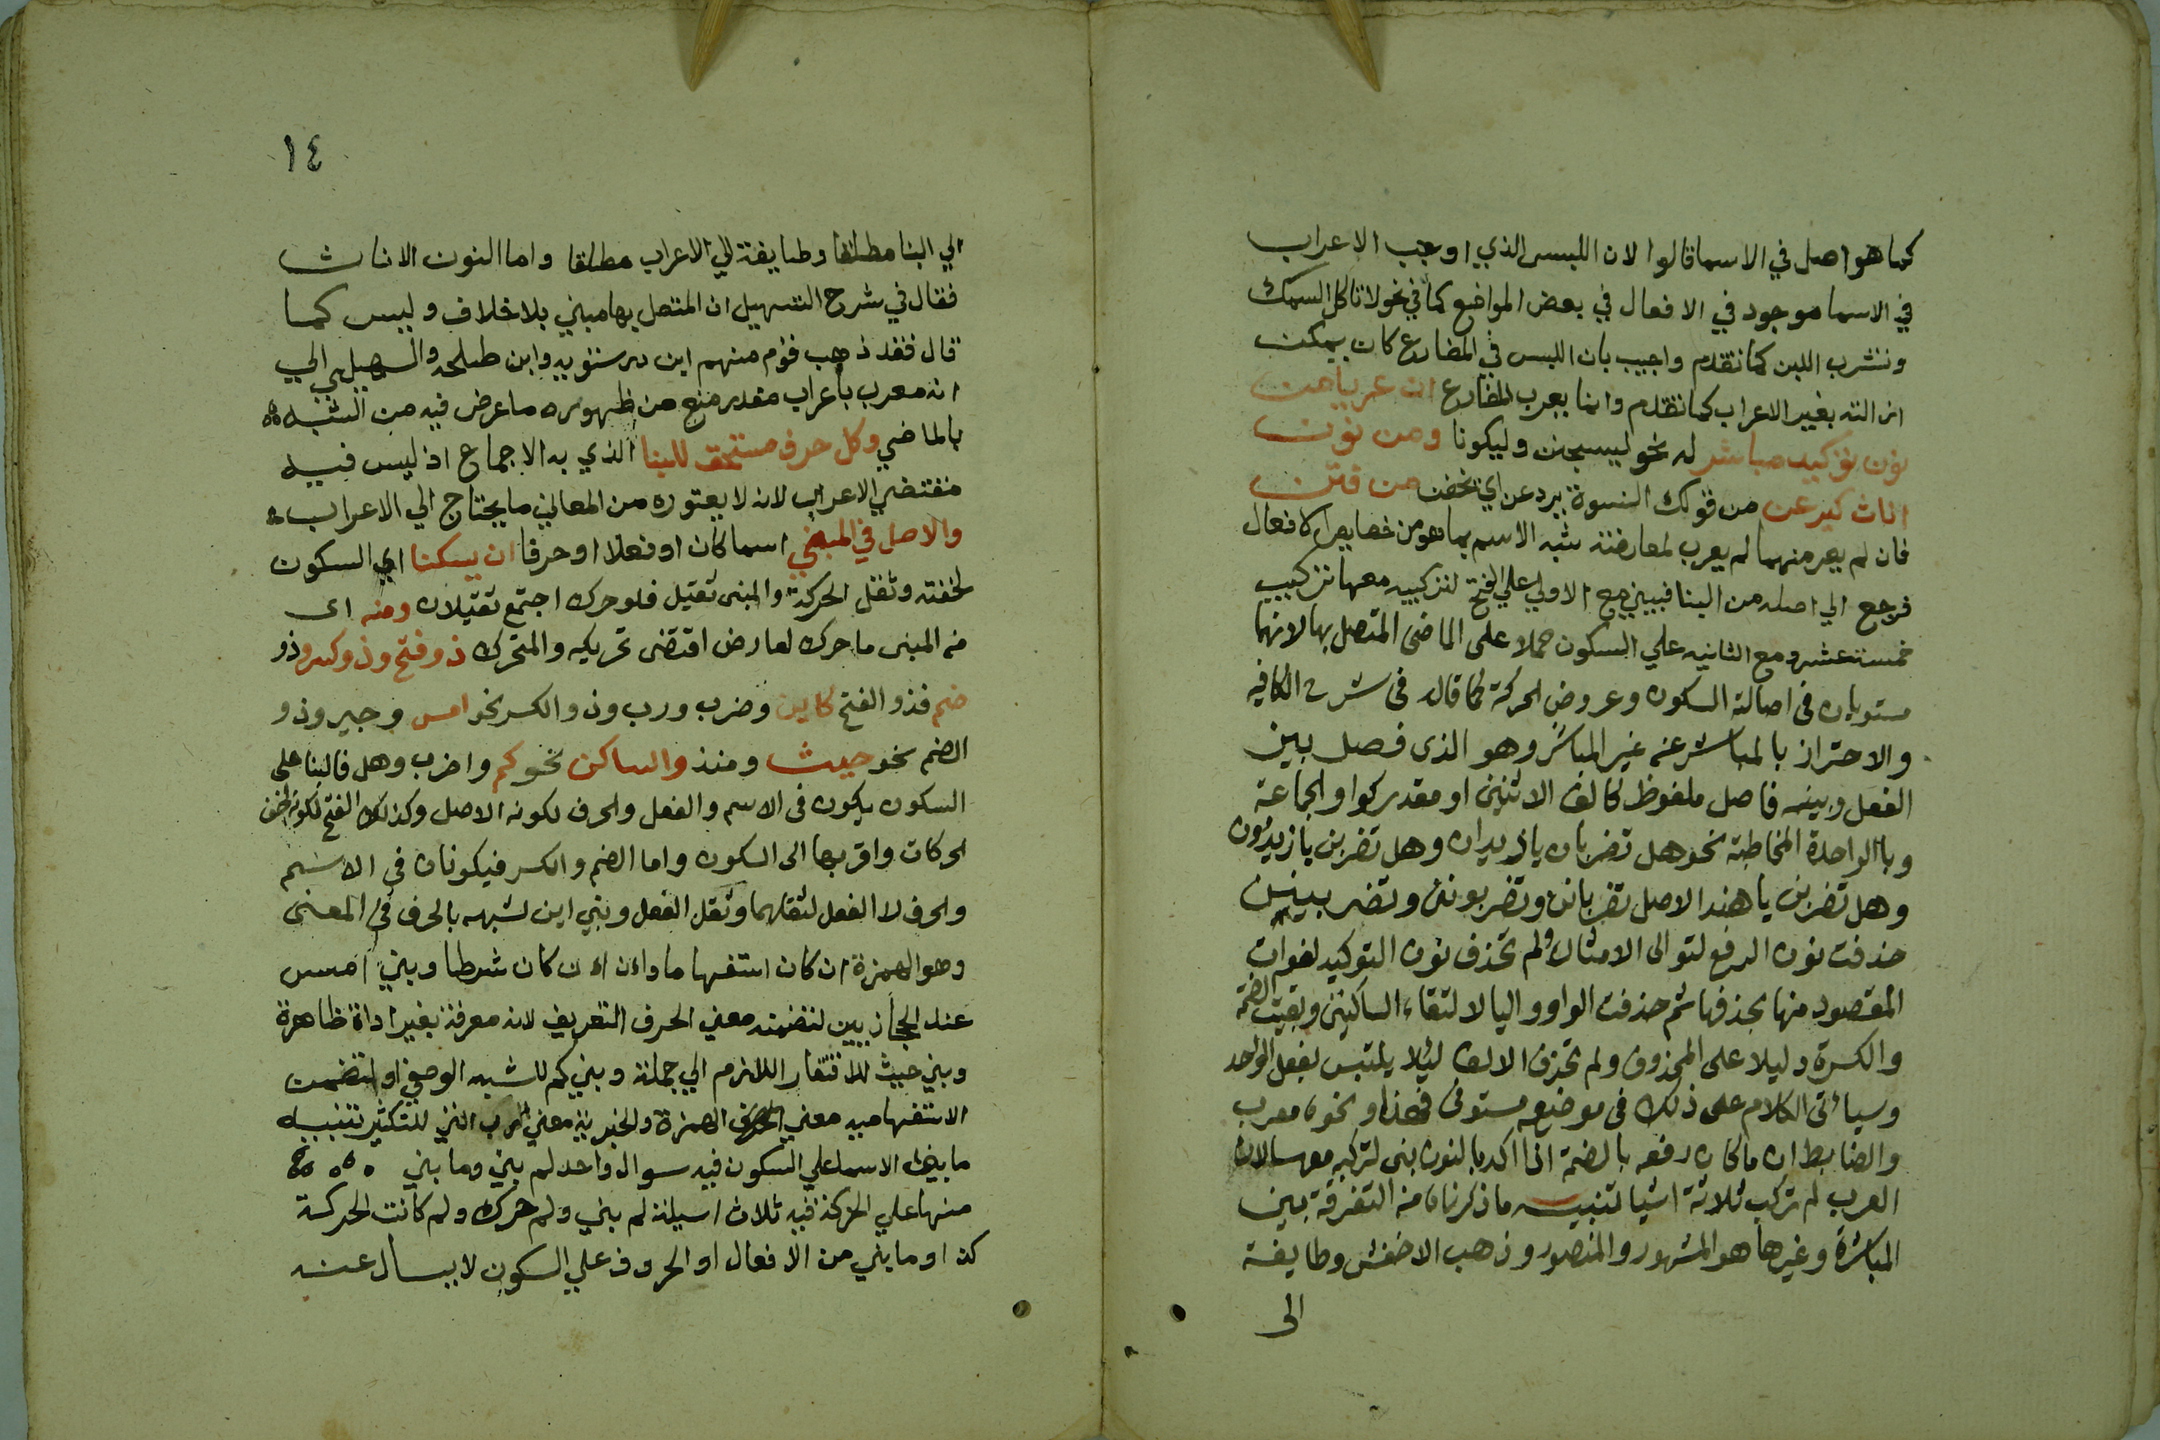 كما هو اصل في الاسما قالوا لان اللبس الذي اوجب الاعراب
في الاسما موجود في الافعال في بعض المواضع كما في نحو لا تاكل السمك
وتشرب اللبن كما تقدم واجيب بان اللبس في المضارع كان يمكن
ازالته بغير الاعراب كما تقدم وانما يعرب المضارع ان عريا من
نون توكيد مباشر له نحو ليسجنن وليكونا ومن نون
اناث كيرعن من قولك النسوة يرعن اي يخفن من فتن
فان لم يعر منهما لم يعرب لمعارضته شبه الاسم بما هو من خصايص الافعال
فرجع الي اصله من البنا فبيني مع الاولي علي الفتح لتركيبه معها تركيب
خمسة عشر ومع الثانيه علي السكون حملا على الماضى المتصل بها لانهما
مستويان فى اصالة السكون وعروض الحركة كما قاله فى شرح الكافيه
والاحتراز بالمباشر عنه غير المباشر وهو الذى فصل بين
الفعل وبينه فاصل ملفوظ كالف الاثنين او مقدر كواو الجماعة
ويا الواحدة المخاطبة نحو هل تضربان يا زيدان وهل تضربن يا زيدون
وهل تضربن يا هند الاصل تضربانن وتضربونن وتضربينن
حذفت نون الرفع لتوالى الامثال ولم تحذف نون التوكيد لفوات
المقصود منها بحذفها ثم حذفت الواو واليا لالتقاء الساكنين وبقيت الضمة
والكسرة دليلا على المحذوف ولم تحذف الالف ليلا يلتبس بفعل الواحد
وسياتى الكلام على ذلك فى موضعه مستوفى فهذا ونحوه معرب
والضابط ان ما كان رفعه بالضمة اذا اكد بالنون بنى لتركبه معها لان
العرب لم تركب ثلاثة اشيا تنبيه ما ذكرناه من التفرقة بين
المباشرة وغيرها هو المشهور والمنصور وذهب الاخفش وطايفة
الى
١٤
الي البنا مطلقا وطايفة الي الاعراب مطلقا واما النون الاناث
فقال في شرح التسهيل ان المتصل بها مبني بلا خلاف وليس كما
قال فقد ذهب قوم منهم ابن درستويه وابن طلحه والسهيلي الي
انه معرب باعراب مقدر منع من ظهوره ما عرض فيه من الشبه
بالماضي وكل حرف مستحق للبنا الذي به الاجماع اذ ليس فيه
مقتضي الاعراب لانه لا يعتوره من المعاني ما يحتاج الي الاعراب
والاصل في المبني اسما كان او فعلا او حرفا ان يسكنا اي السكون
لخفته وثقل الحركة والمبنى ثقيل فلو حرك اجتمع ثقيلان ومنه اى
من المبنى ما حرك لعارض اقتضى تحريكه والمتحرك ذو فتح وذو كسر وذو
ضم فذو الفتح كاين وضرب ورب وذو الكسر نحو امس وجير وذو
الضم نحو حيث ومنذ والساكن نحو كم واضرب وهل فالبنا على
السكون يكون فى الاسم والفعل والحرف لكونه الاصل وكذلك الفتح لكونه اخف
الحركات واقربها الى السكون واما الضم والكسر فيكونان في الاسم
والحرف لا الفعل لثقلهما وثقل الفعل وبني اين لشبهه بالحرف في المعنى
وهو الهمزة ان كان استفهاما وان ان كان شرطا وبني امس
عند الحجازيين لتضمنه معني الحرف التعريف لانه معرفة بغير اداة ظاهرة
وبني حيث للافتقار اللازم الي جملة وبني كم للشبه الوضعي او لتضمنت
الاستفهاميه معني الهمزة والخبرية معني رب التي للتكثير تنبيه
ما بني من الاسما علي السكون فيه سوال واحد لم بني وما بني
منها علي الحركة فيه ثلاث اسيلة لم بني ولم حرك ولم كانت الحركة
كذا وما بني من الافعال او الحروف علي السكون لا يسال عنه